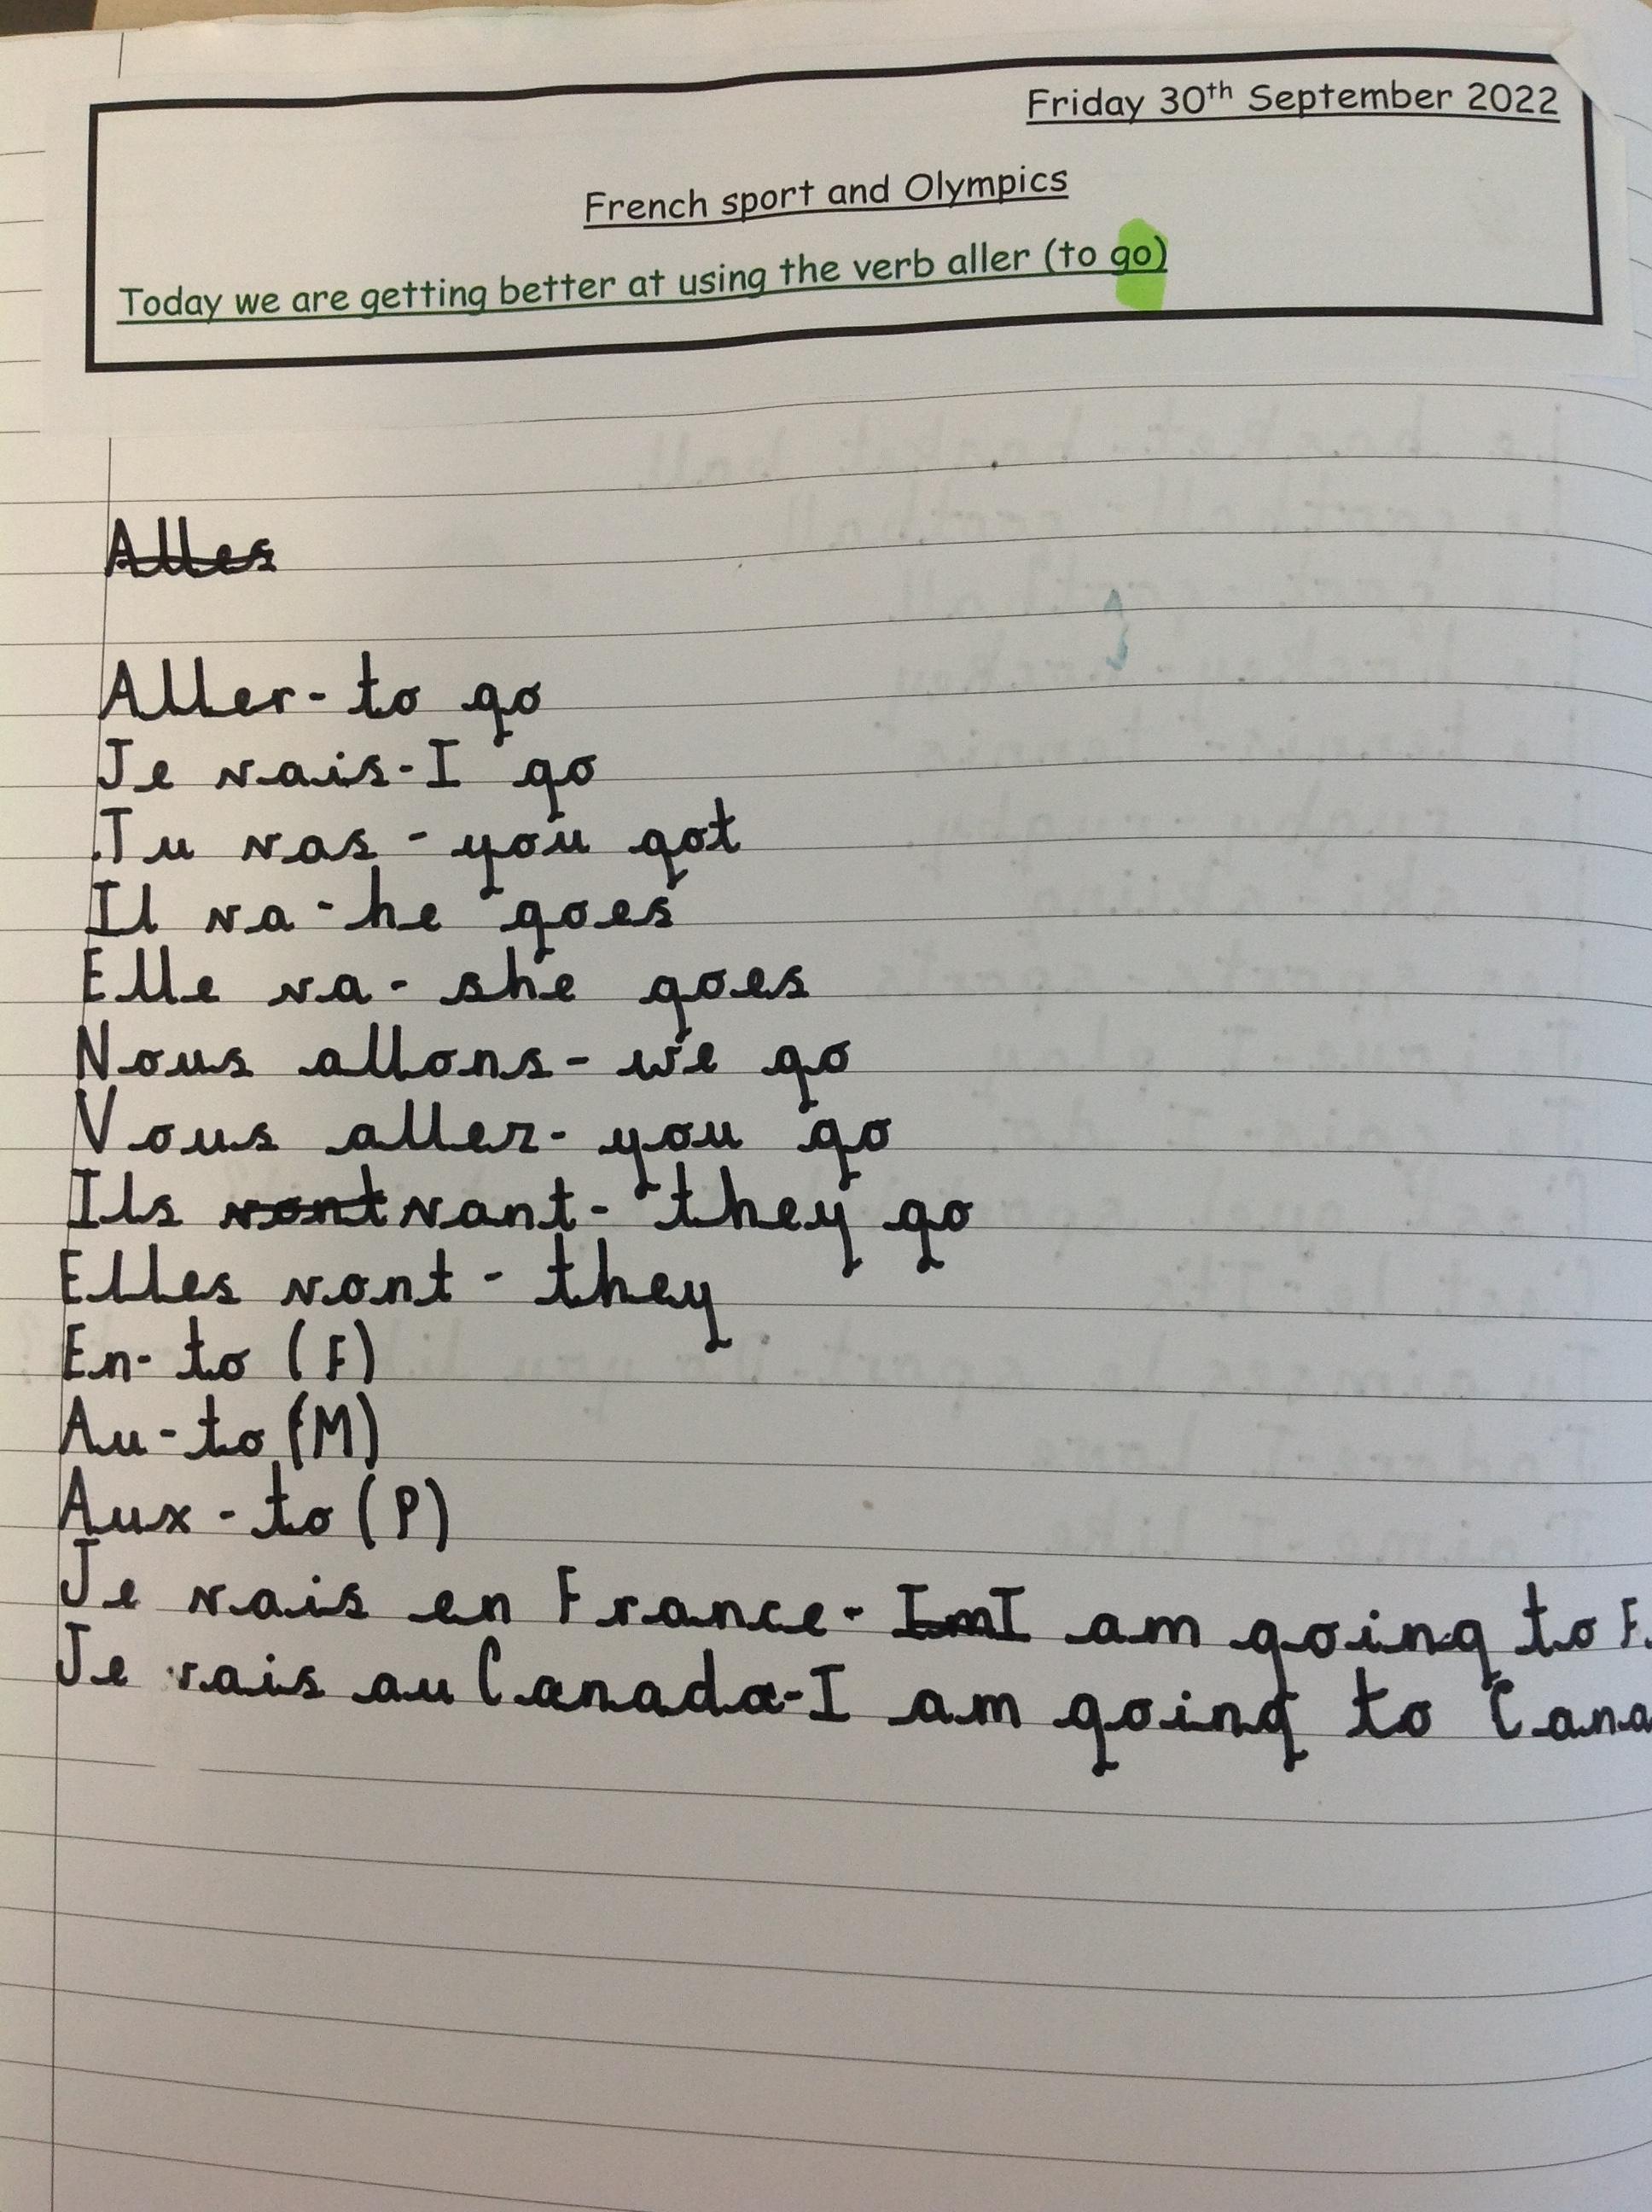 Friday 30th September 2022
French sport and Olympics
Today we are getting better at using the verb aller (to go)
Alles
Aller - to go
Je vais - I go
Tu vas - you got
Il va - he goes
Elle va - she goes
Nous allons - we go
Vous aller - you go
Ils vont vant - they go
Elles vont - they
En - to (F)
Au - to (M)
Aux - to (P)
Je vais en France - Im I am going to F
Je vais au Canada - I am going to Cana